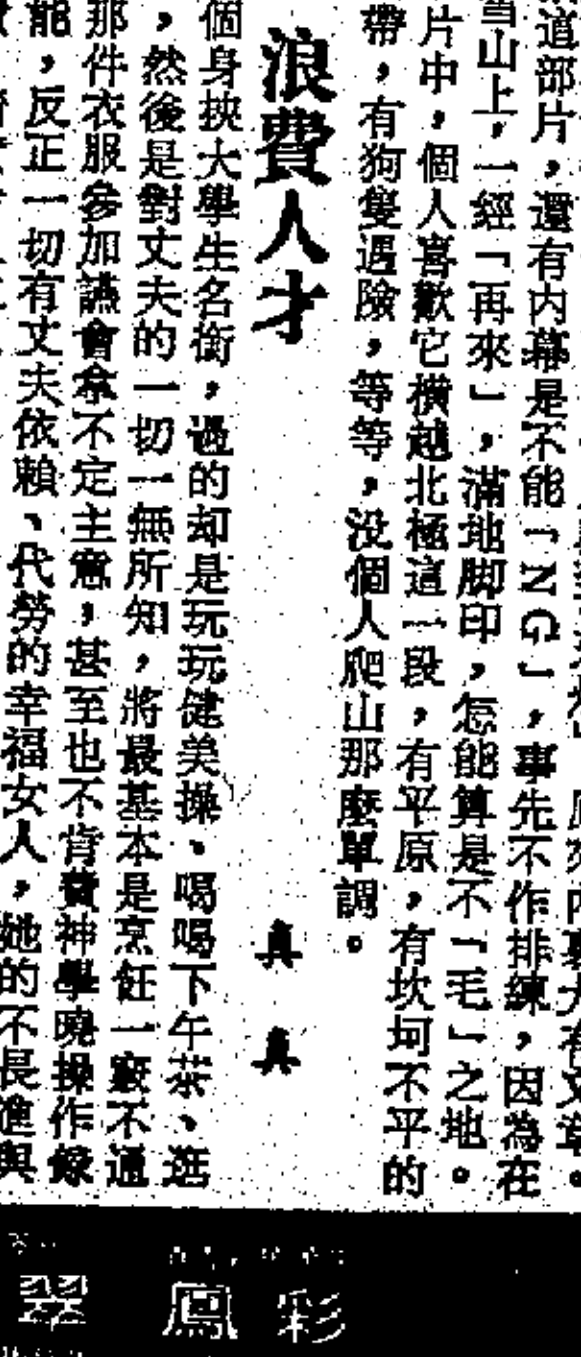 道部片，還有内幕是不能「NG」，事先不作排練，因為在
山上，一經「再來」，滿地脚印，怎能算是不「毛」之地。
片中，個人喜歡它橫越北極這一段，有平原，有坎坷不平的
帶，有狗隻遇險，等等，没個人爬山那麽單調。
浪費人才
真真
個身挾大學生名銜，過的却是玩玩健美操、喝喝下午茶、逛
，然後是對丈夫的一切一無所知，將最基本是烹飪一竅不通
那件衣服參加讌會拿不定主意，甚至也不肯費神學曉操作錄
能，反正一切有丈夫依賴、代勞的幸福女人，她的不長進與
彩鳳
翠